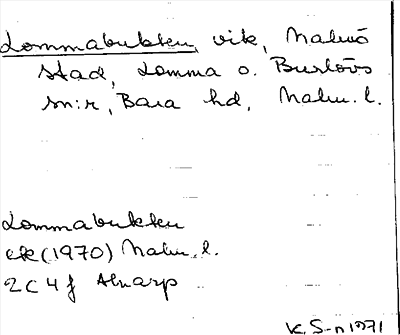 Lommabukten, vik, Malmö
stad, Lomma o. Burlövs
sn:r, Bara hd, Malm. l.
Lommabukten
ek (1970) Malm. l.
2C4f Alnarp
K. S-n 1971